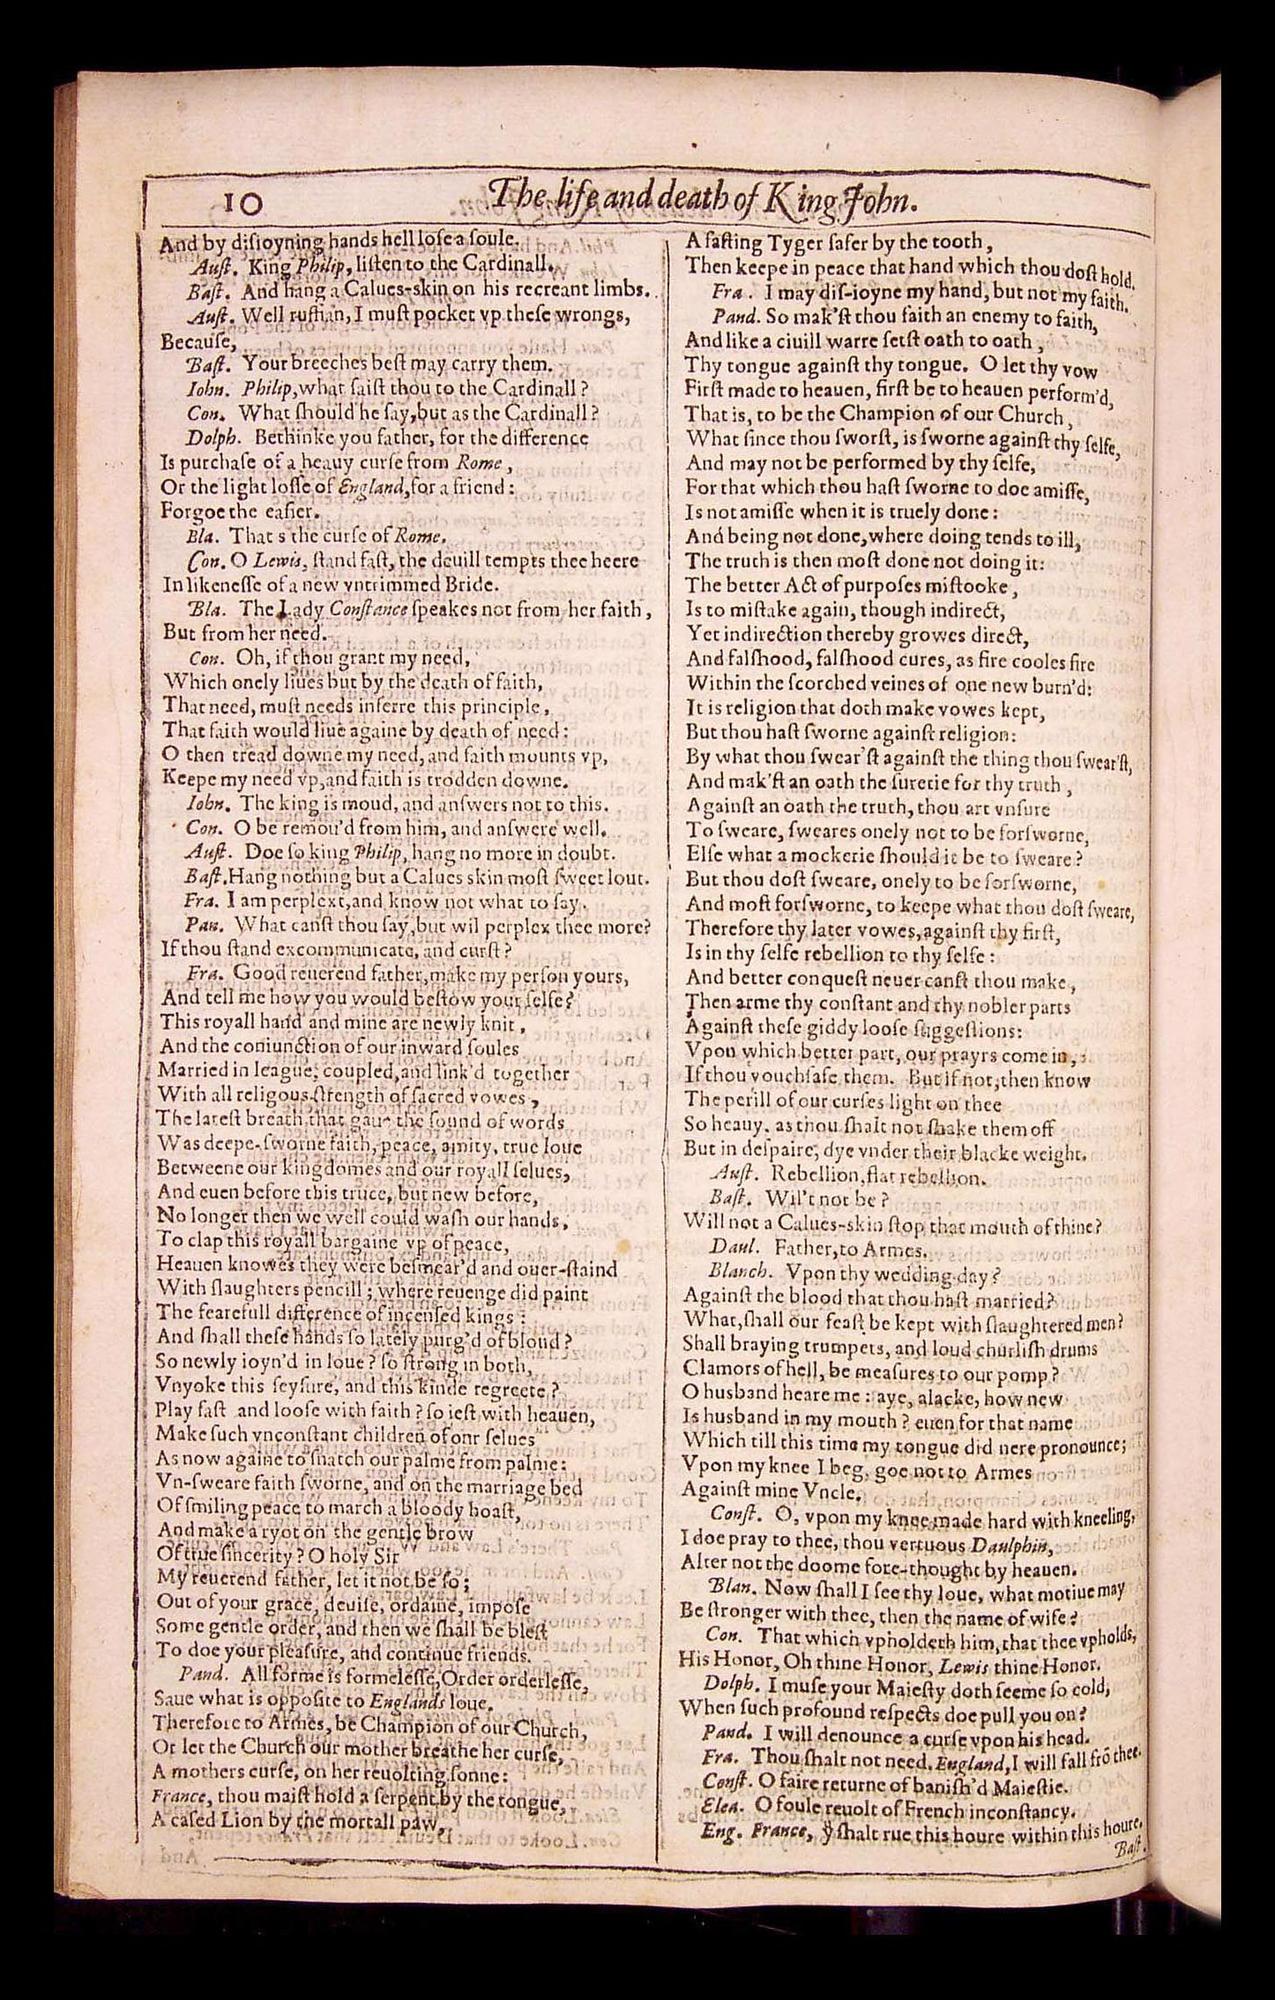 10
The life and death of King John.
And by disioyning hands hell lose a soule.
Aust. King Philip, listen to the Cardinall.
Bast. And hang a Calues-skin on his recreant limbs.
Aust. Well ruffian, I must pocket vp these wrongs,
Because,
Bast. Your breeches best may carry them.
Iohn. Philip, what saist thou to the Cardinall?
Con. What should he say, but as the Cardinall?
Dolph. Bethinke you father, for the difference
Is purchase of a heauy curse from Rome,
Or the light losse of England, for a friend:
Forgoe the easier.
Bla. That s the curse of Rome.
Con. O Lewis, stand fast, the deuill tempts thee heere
In likenesse of a new vntrimmed Bride.
Bla. The Lady Constance speakes not from her faith,
But from her need.
Con. Oh, if thou grant my need,
Which onely liues but by the death of faith,
That need, must needs inferre this principle,
That faith would liue againe by death of need:
O then tread downe my need, and faith mounts vp,
Keepe my need vp, and faith is trodden downe.
Iohn. The king is moud, and answers not to this.
Con. O be remou'd from him, and answere well.
Aust. Doe so king Philip, hang no more in doubt.
Bast. Hang nothing but a Calues skin most sweet lout.
Fra. I am perplext, and know not what to say.
Pan. What canst thou say, but wil perplex thee more?
If thou stand excommunicate, and curst?
Fra. Good reuerend father, make my person yours,
And tell me how you would bestow your selfe?
This royall hand and mine are newly knit,
And the coniunction of our inward soules
Married in league, coupled, and link'd together
With all religous strength of sacred vowes,
The latest breath that gaue the sound of words
Was deepe-sworne faith, peace, amity, true loue
Betweene our kingdomes and our royall selues,
And euen before this truce, but new before,
No longer then we well could wash our hands,
To clap this royall bargaine vp of peace,
Heauen knowes they were besmear'd and ouer-staind
With slaughters pencill; where reuenge did paint
The fearefull difference of incensed kings:
And shall these hands so lately purg'd of bloud?
So newly ioyn'd in loue? so strong in both,
Vnyoke this seysure, and this kinde regreete?
Play fast and loose with faith? so iest with heauen,
Make such vnconstant children of onr selues
As now againe to snatch our palme from palme:
Vn-sweare faith sworne, and on the marriage bed
Of smiling peace to march a bloody hoast,
And make a ryot on the gentle brow
Of true sincerity? O holy Sir
My reuerend father, let it not be so;
Out of your grace, deuise, ordaine, impose
Some gentle order, and then we shall be blest
To doe your pleasure, and continue friends.
Pand. All forme is formelesse, Order orderlesse,
Saue what is opposite to Englands loue.
Therefore to Armes, be Champion of our Church,
Or let the Church our mother breathe her curse,
A mothers curse, on her reuolting sonne:
France, thou maist hold a serpent by the tongue,
A cased Lion by the mortall paw,
A fasting Tyger safer by the tooth,
Then keepe in peace that hand which thou dost hold.
Fra. I may dis-ioyne my hand, but not my faith.
Pand. So mak'st thou faith an enemy to faith,
And like a ciuill warre setst oath to oath,
Thy tongue against thy tongue. O let thy vow
First made to heauen, first be to heauen perform'd,
That is, to be the Champion of our Church,
What since thou sworst, is sworne against thy selfe,
And may not be performed by thy selfe,
For that which thou hast sworne to doe amisse,
Is not amisse when it is truely done:
And being not done, where doing tends to ill,
The truth is then most done not doing it:
The better Act of purposes mistooke,
Is to mistake again, though indirect,
Yet indirection thereby growes direct,
And falshood, falshood cures, as fire cooles fire
Within the scorched veines of one new burn'd:
It is religion that doth make vowes kept,
But thou hast sworne against religion:
By what thou swear'st against the thing thou swear'st,
And mak'st an oath the suretie for thy truth,
Against an oath the truth, thou art vnsure
To sweare, sweares onely not to be forsworne,
Else what a mockerie should it be to sweare?
But thou dost sweare, onely to be forsworne,
And most forsworne, to keepe what thou dost sweare,
Therefore thy later vowes, against thy first,
Is in thy selfe rebellion to thy selfe:
And better conquest neuer canst thou make,
Then arme thy constant and thy nobler parts
Against these giddy loose suggestions:
Vpon which better part, our prayrs come in,
If thou vouchsafe them. But if not, then know
The perill of our curses light on thee
So heauy, as thou shalt not shake them off
But in despaire, dye vnder their blacke weight.
Aust. Rebellion, flat rebellion.
Bast. Wil't not be?
Will not a Calues-skin stop that mouth of thine?
Daul. Father, to Armes.
Blanch. Vpon thy wedding day?
Against the blood that thou hast married?
What, shall our feast be kept with slaughtered men?
Shall braying trumpets, and loud churlish drums
Clamors of hell, be measures to our pomp?
O husband heare me: aye, alacke, how new
Is husband in my mouth? euen for that name
Which till this time my tongue did nere pronounce;
Vpon my knee I beg, goe not to Armes
Against mine Vncle.
Const. O, vpon my knee made hard with kneeling,
I doe pray to thee, thou vertuous Daulphin,
Alter not the doome fore-thought by heauen.
Blan. Now shall I see thy loue, what motiue may
Be stronger with thee, then the name of wife?
Con. That which vpholdeth him, that thee vpholds,
His Honor, Oh thine Honor, Lewis thine Honor.
Dolph. I muse your Maiesty doth seeme so cold,
When such profound respects doe pull you on?
Pand. I will denounce a curse vpon his head.
Fra. Thou shalt not need. England, I will fall frō thee.
Const. O faire returne of banish'd Maiestie.
Elea. O foule reuolt of French inconstancy.
Eng. France, ẙ shalt rue this houre within this houre.
Bast.